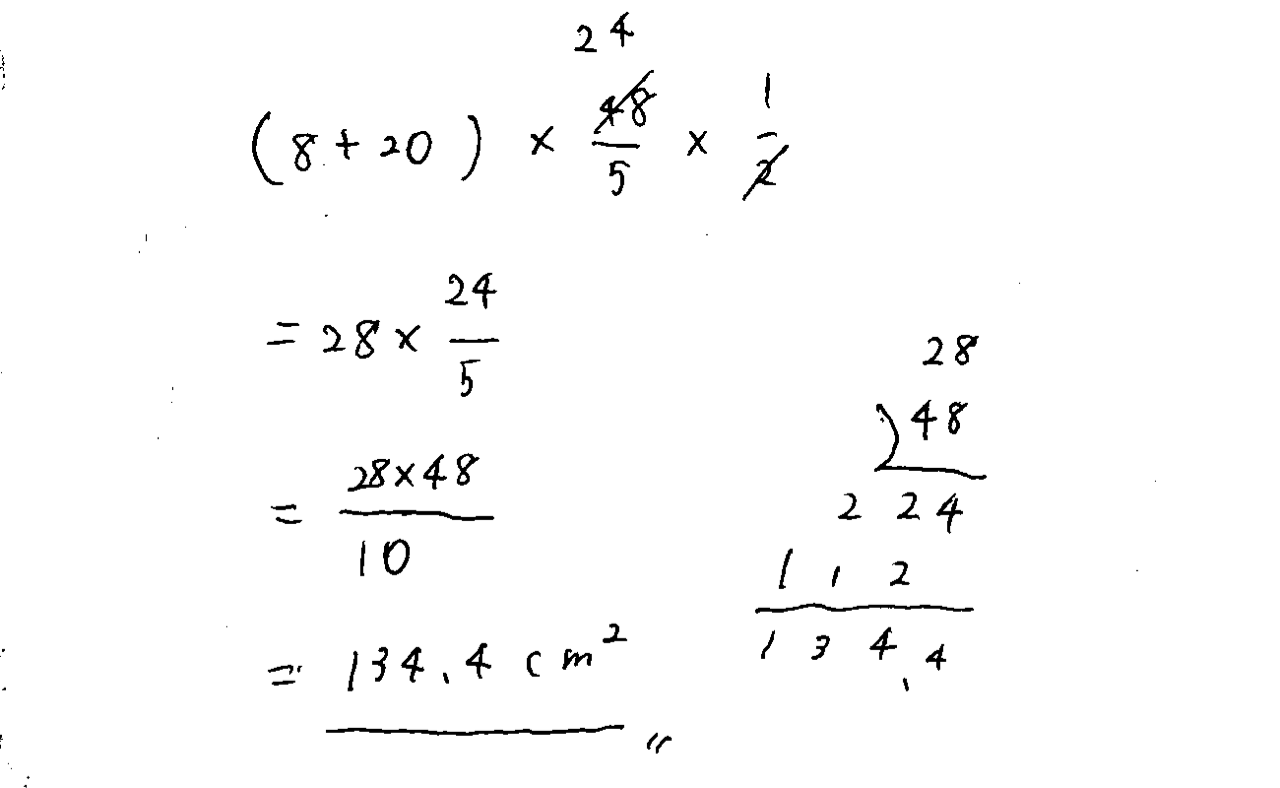 24
(8+20) × 48/5 × 1/2
= 28 × 24/5
= 28×48/10
= 134.4 cm²
28
)48
224
112
134.4